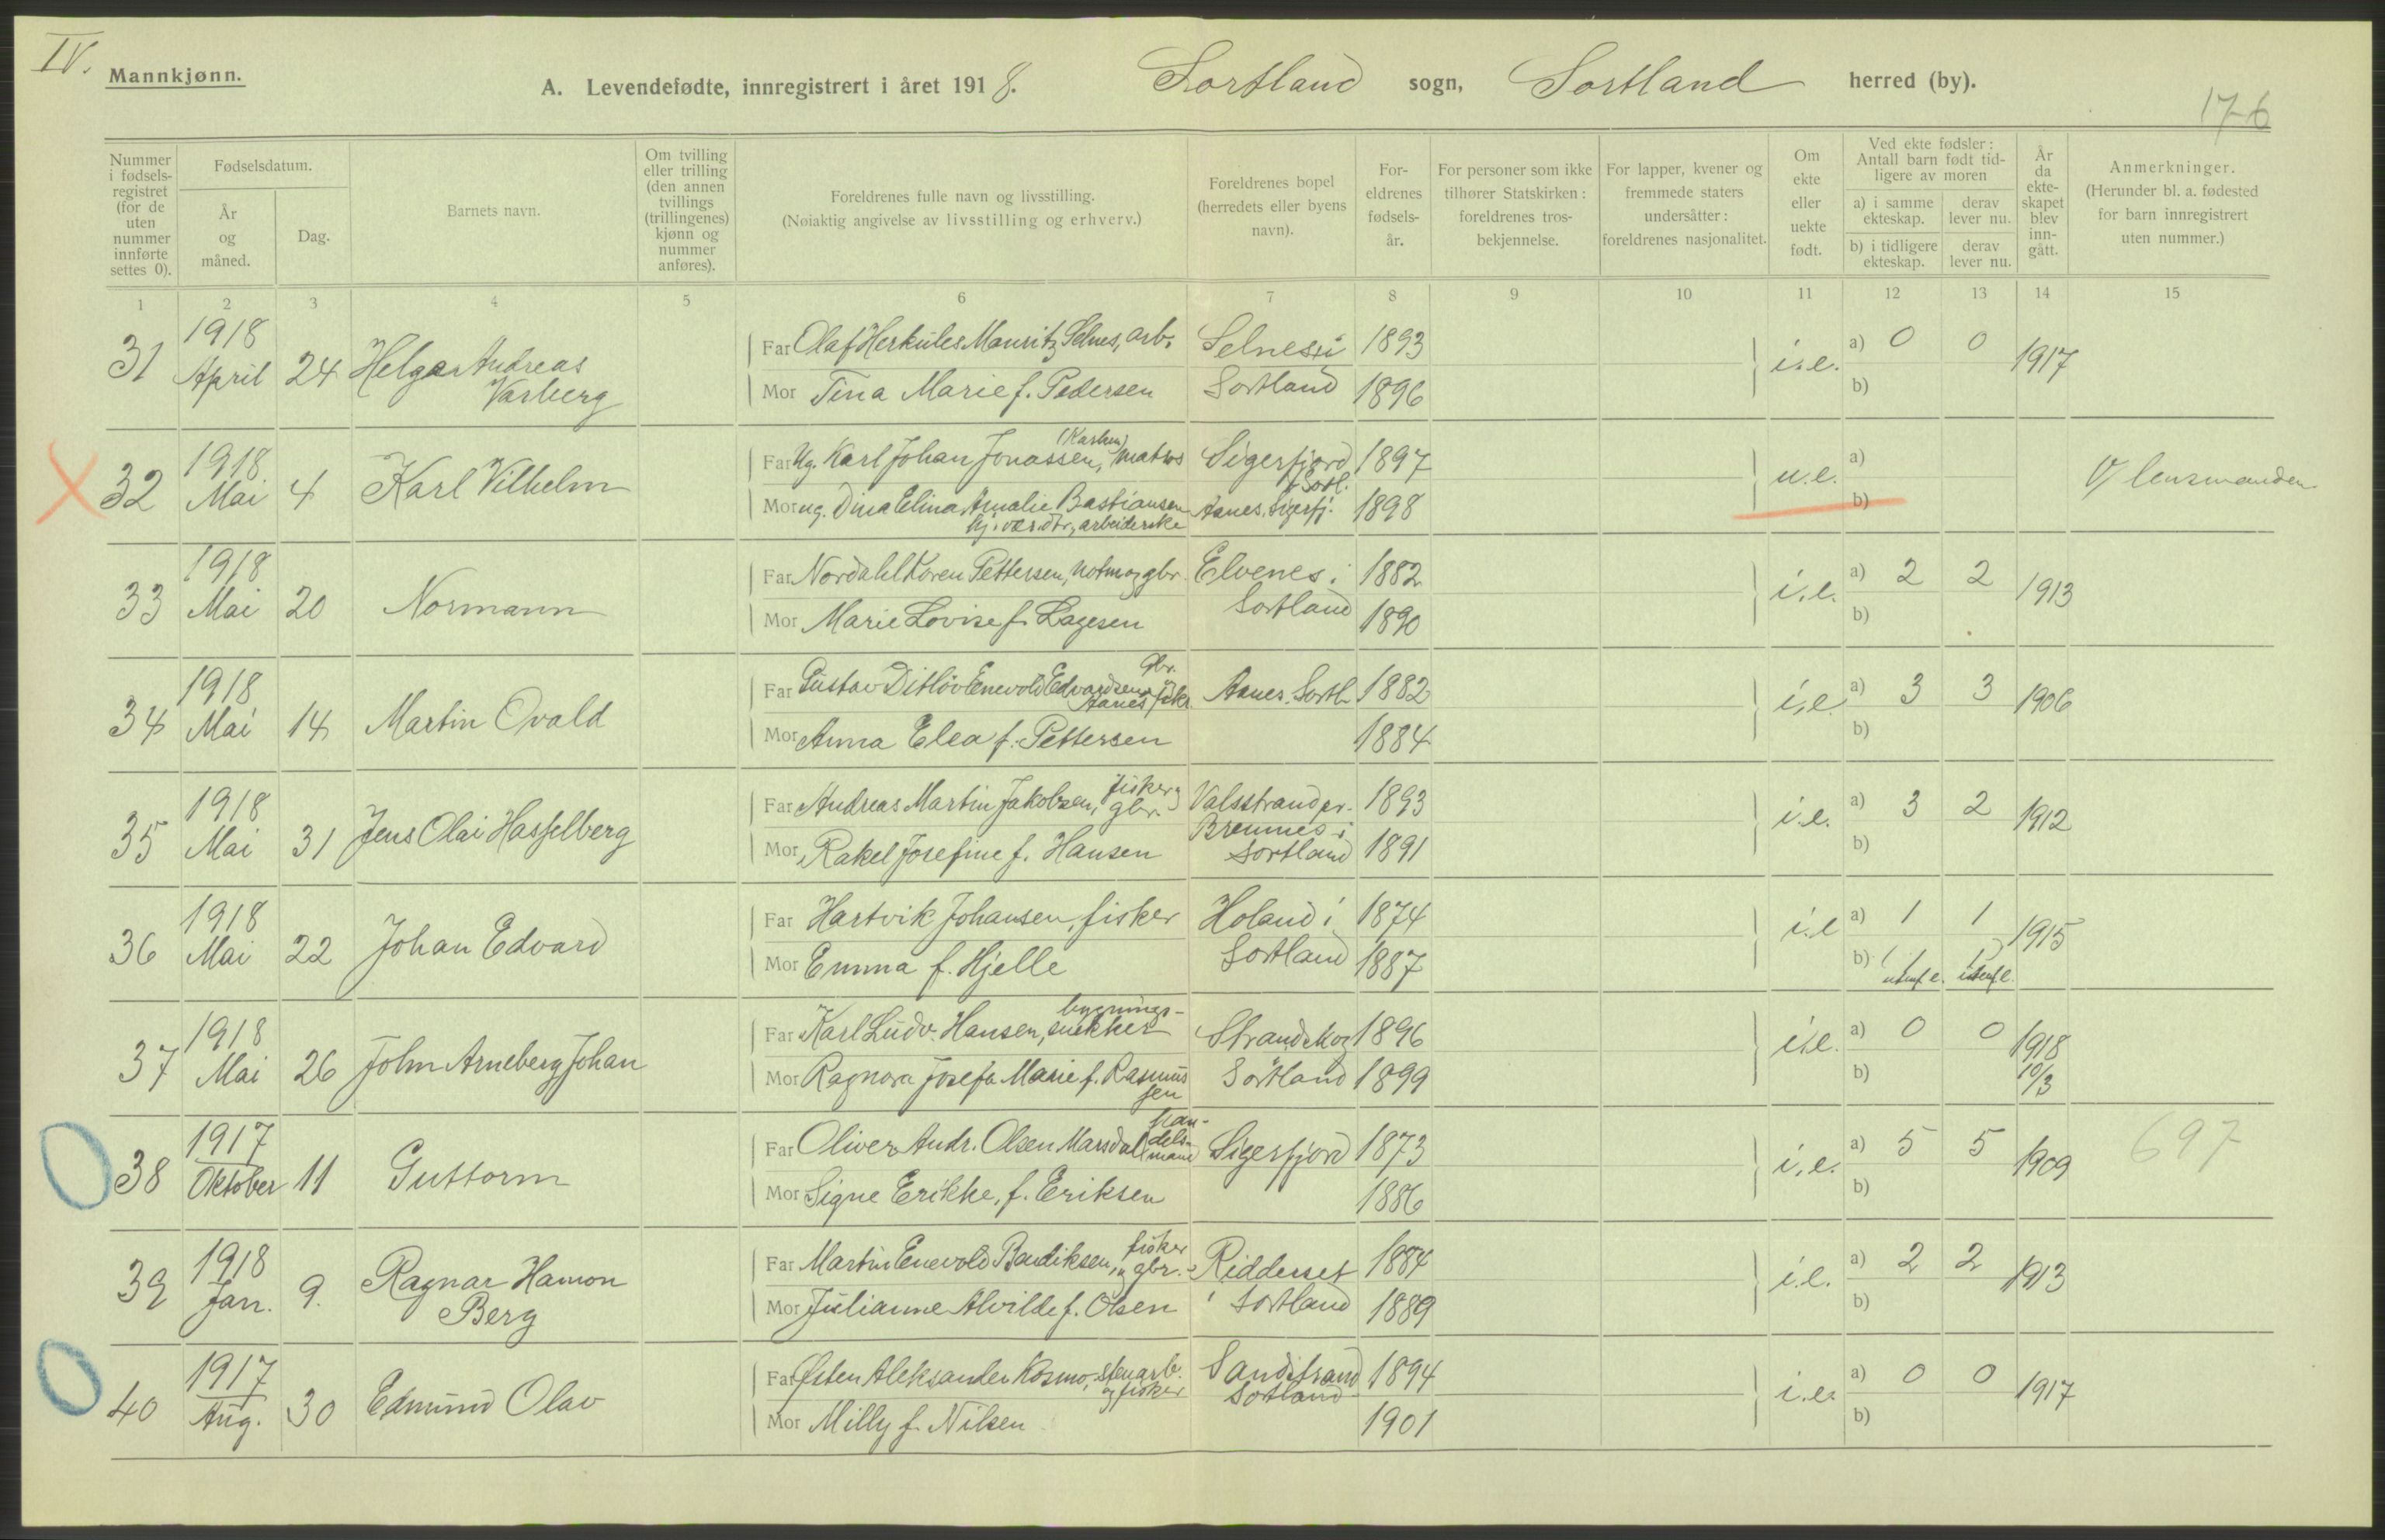 IV.
Mannkjønn.
A. Levendefødte, innregistrert i året 1918. Sortland sogn, Sortland herred (by).
176
Nummer i fødsels-registret (for de uten nummer innførte settes 0).
Fødselsdatum.
År og måned.
Dag.
Barnets navn.
Om tvilling eller trilling (den annen tvillings (trillingenes) kjønn og nummer anføres).
Foreldrenes fulle navn og livsstilling.
(Nøiaktig angivelse av livsstilling og erhverv.)
Foreldrenes bopel (herredets eller byens navn).
For-eldrenes fødsels-år.
For personer som ikke tilhører Statskirken: foreldrenes tros-bekjennelse.
For lapper, kvener og fremmede staters undersåtter: foreldrenes nasjonalitet.
Om ekte eller uekte født.
Ved ekte fødsler: Antall barn født tid-ligere av moren
a) i samme ekteskap. derav lever nu.
b) i tidligere ekteskap. derav lever nu.
År da ekte-skapet blev inn-gått.
Anmerkninger.
(Herunder bl. a. fødested for barn innregistrert uten nummer.)
1 2 3 4 5 6 7 8 9 10 11 12 13 14 15
31 1918 April 24 Helger Andreas Varberg
Far Olaf Herkules Mauritz Selnes, arb. Selnes i 1893 i.e. a) 0 0 1917
Mor Tina Marie f. Pedersen Sortland 1896 b)
32 1918 Mai 4 Karl Vilhelm
Far Ug. Karl Johan Jonassen, matros Sigerfjord 1897 u.e. a) V/ lensmanden
Sortl.
Mor ug. Dina Elina Amalie Bastiansen Aanes, Sigerfj. 1898 b)
hj. vær. dtr, arbeiderske
33 1918 Mai 20 Normann
Far Nordahl Koren Pettersen, notm og gbr. Elvenes i 1882 i.e. a) 2 2 1913
Mor Marie Lovise f. Lagesen Sortland 1890 b)
34 1918 Mai 14 Martin Ovald
Far Gustav Ditløv Enevold Edvardsen Aanes Gbr. og fisker Aanes. Sortl. 1882 i.e. a) 3 3 1906
Mor Anna Elea f. Pettersen 1884 b)
35 1918 Mai 31 Jens Olai Hasselberg
Far Andreas Martin Jakobsen, fisker og gbr. Valsstrand pr. 1893 i.e. a) 3 2 1912
Bremnes i
Mor Rakel Josefine f. Hansen Sortland 1891 b)
36 1918 Mai 22 Johan Edvard
Far Hartvik Johansen, fisker Holand i 1874 i.e a) 1 1 1915
Mor Emma f. Hjelle Sortland 1887 b) 1 1
utenf e. utenf e.
37 1918 Mai 26 John Arneberg Johan
Far Karl Ludv. Hansen, bygnings-snekker Strandskog 1896 i.e. a) 0 0 1918 10/3
Mor Ragnora Josefa Marie f. Rasmussen Sortland 1899 b)
38 1917 Oktober 11 Guttorm
Far Oliver Andr. Olsen Marsdal handelsmand Sigerfjord 1873 i.e. a) 5 5 1909 697
Mor Signe Erikke, f. Eriksen 1886 b)
39 1918 Jan. 9. Ragnar Hamon Berg
Far Martin Enevold Bendiksen, fisker og gbr. Ridderset 1884 i.e. a) 2 2 1913
Mor Julianne Alvilde f. Olsen i Sortland 1889 b)
40 1917 Aug. 30 Edmund Olav
Far Østen Aleksander Kosmo, stenarb. og fisker Sandstrand 1894 i.e. a) 0 0 1917
Sortland
Mor Milly f. Nilsen 1901 b)